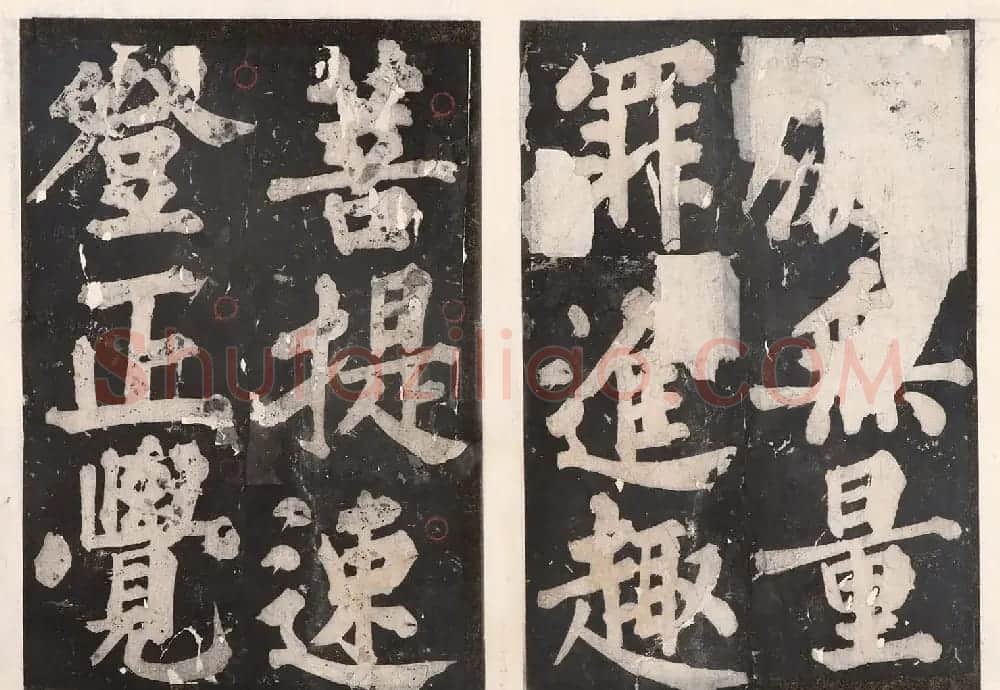 無量
罪進趣
菩提速
登正覺
Shufaziliao.COM